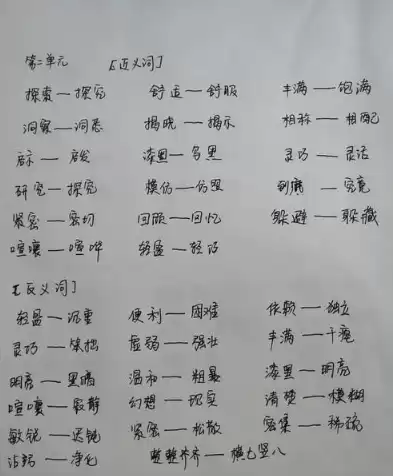 第二单元 [近义词]
探索—探究 舒适—舒服 丰满—饱满
洞察—洞悉 揭晓—揭示 相称—相配
启示—启发 漆黑—乌黑 灵巧—灵活
研究—探究 模仿—仿照 到底—究竟
紧密—密切 回顾—回忆 躲避—躲藏
喧嚷—喧哗 轻盈—轻巧
[反义词]
轻盈—沉重 便利—困难 依赖—独立
灵巧—笨拙 虚弱—强壮 丰满—干瘪
明亮—黑暗 温和—粗暴 漆黑—明亮
喧嚷—寂静 幻想—现实 清楚—模糊
敏锐—迟钝 紧密—松散 密集—稀疏
沾污—净化 整整齐齐—横七竖八